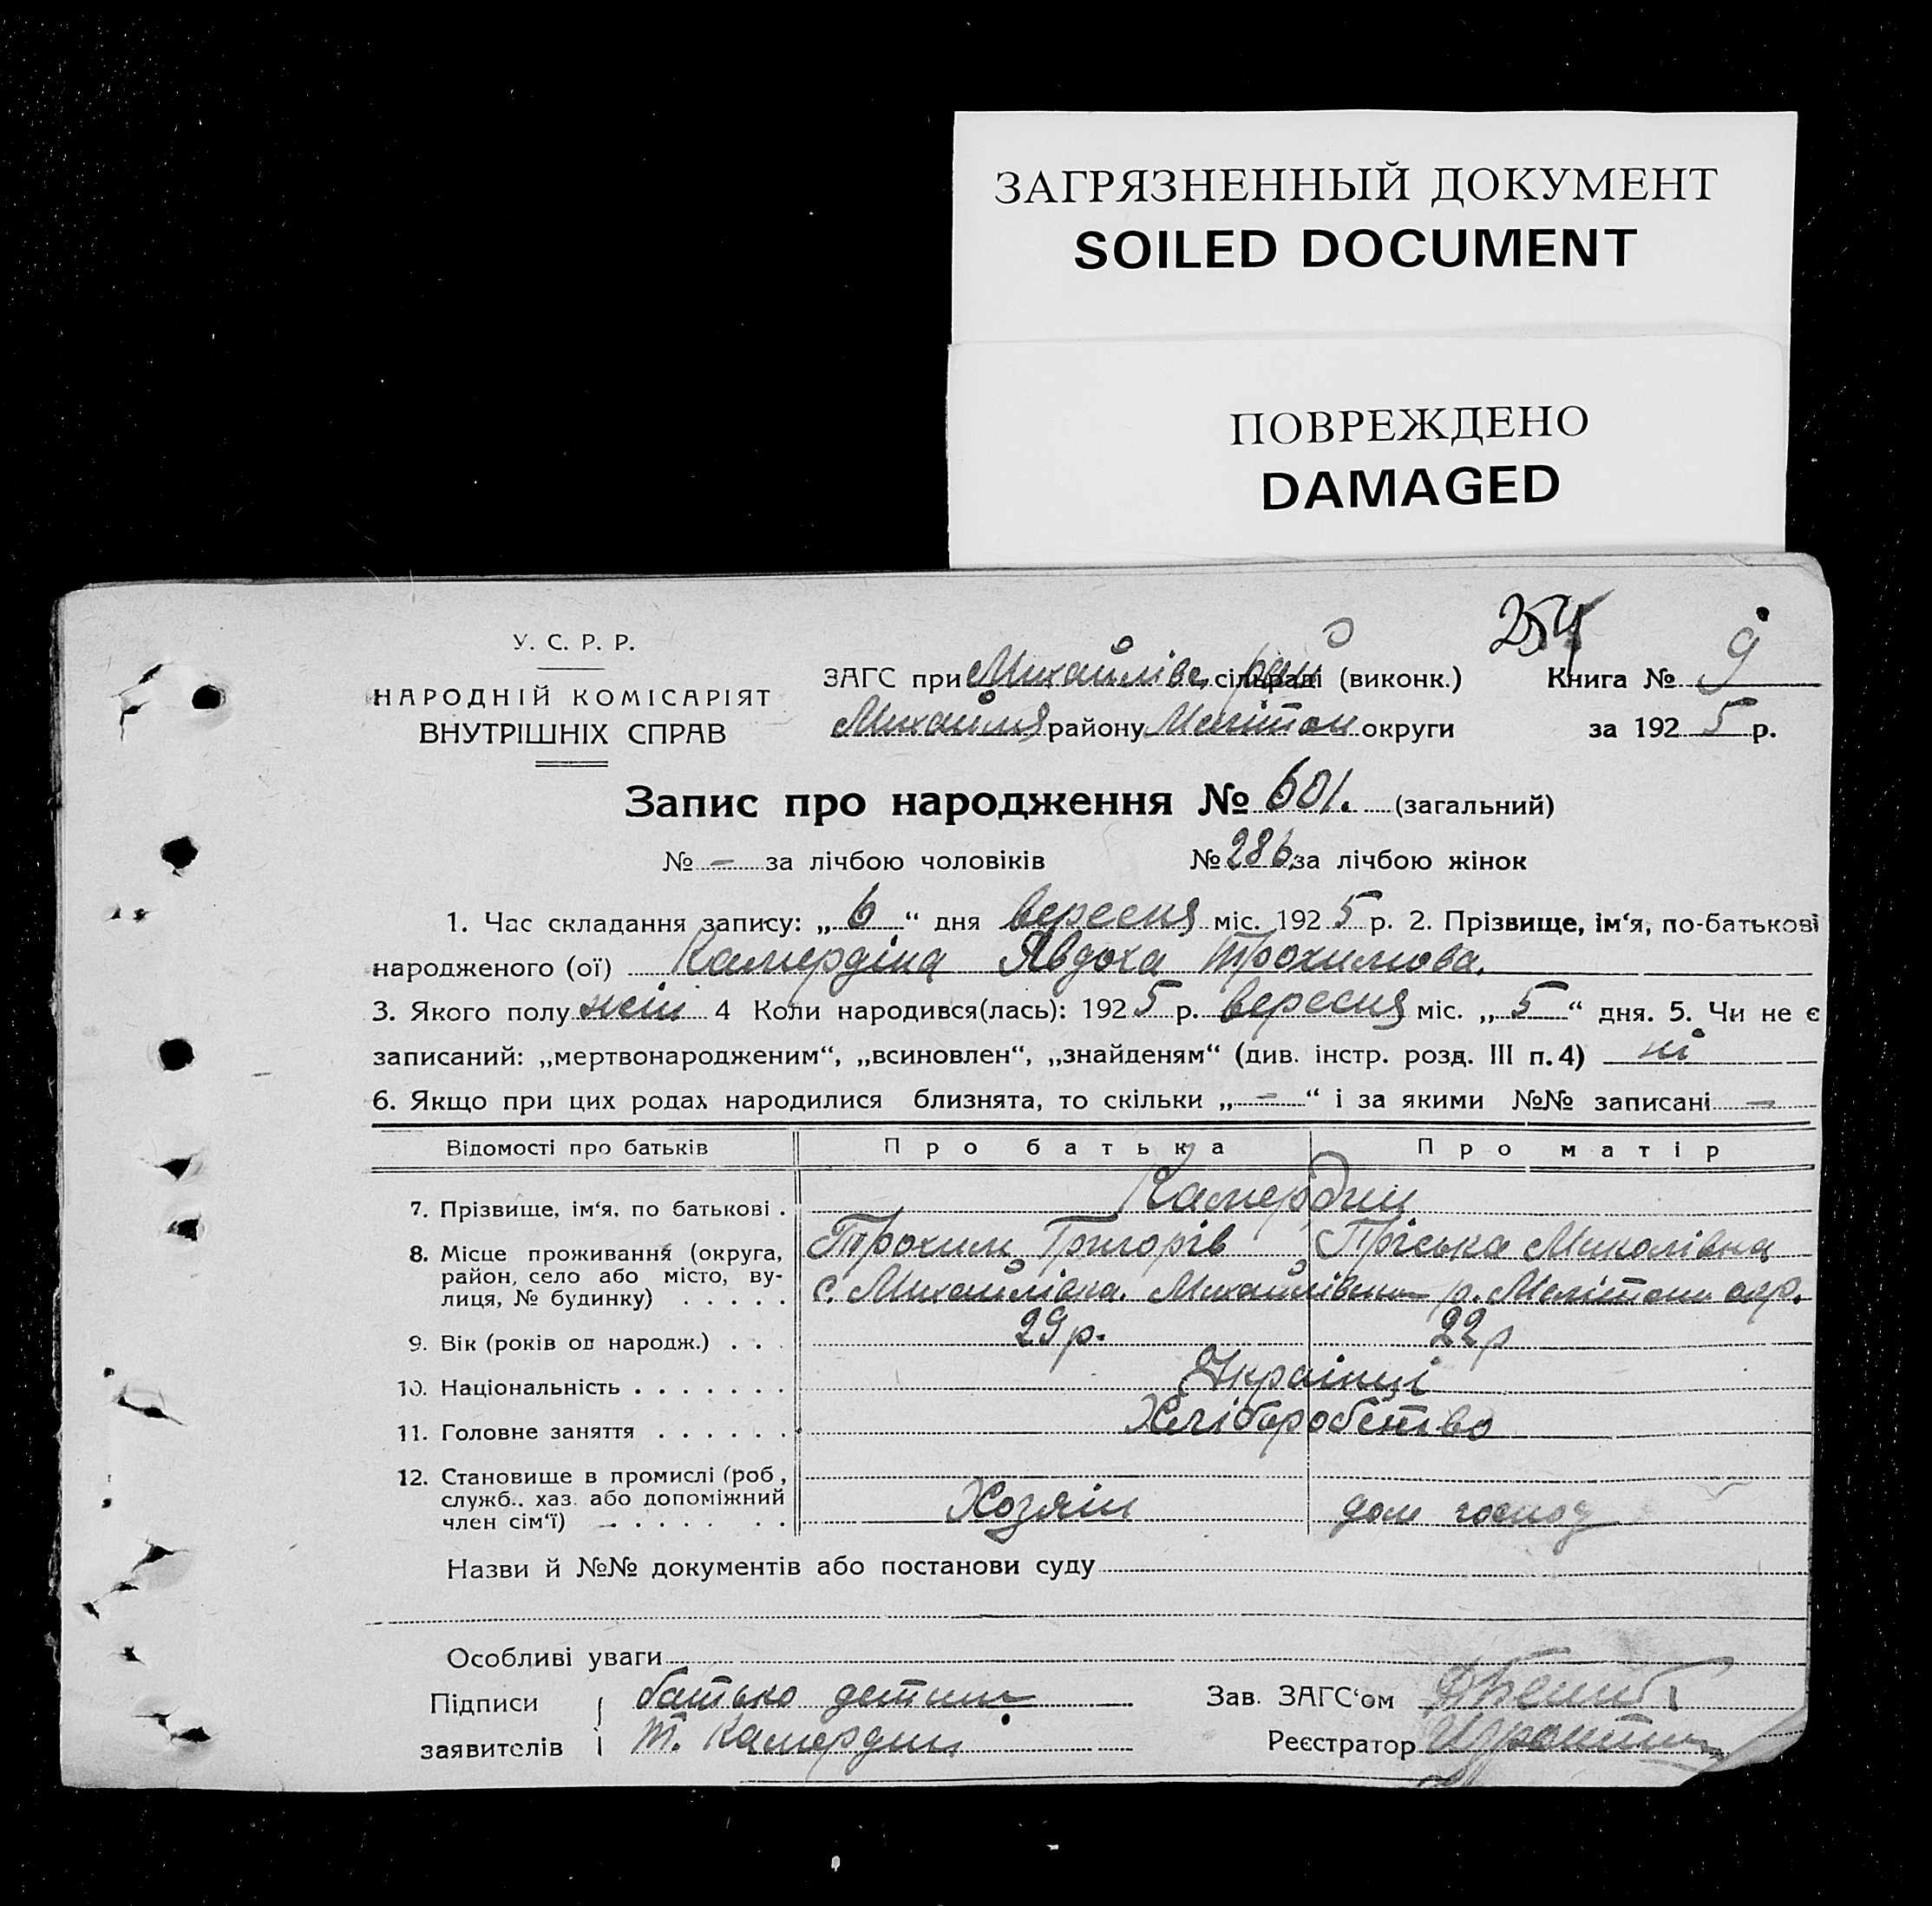 ЗАГРЯЗНЕННЫЙ ДОКУМЕНТ
SOILED DOCUMENT
ПОВРЕЖДЕНО
DAMAGED
У. С. Р. Р.
НАРОДНІЙ КОМІСАРІЯТ
ВНУТРІШНІХ СПРАВ
254
ЗАГС при Михайлівс. сільраді (виконк.) Книга № 9
Михайл района Мелітоп округи за 1925 р.
Запис про народження № 601. (загальний)
№ – за лічбою чоловіків № 286 за лічбою жінок
1. Час складання запису: „6“ дня вересня міс. 1925 р. 2. Прізвище, ім‘я, по-батькові
народженого (ої) Камердіна Явдоха Трохимова.
3. Якого полу жін 4 Коли народився(лась): 1925 р. вересня міс. „5“ дня. 5. Чи не є
записаний: „мертвонародженим“, „всиновлен“, „знайденям“ (див. інстр. розд. III п. 4) ні
6. Якщо при цих родах народилися близнята, то скільки „–“ і за якими №№ записані –
Відомості про батьків Про батька Про матір
7. Прізвище, ім‘я, по батькові . Камердин
Трохим Григорів Пріська Миколівна
8. Місце проживання (округа,
район, село або місто, ву-
лиця, № будинку) . . . . . с. Михайлівка. Михайлівськ р. Мелітоп окр.
9. Вік (років од народж.) . . . 29 р. 22 р
10. Національність . . . . . . . Українці
11. Головне заняття . . . . . . . Хліборобство
12. Становище в промислі (роб.,
служб., хаз. або допоміжний
член сім‘ї) . . . . . . . Хозяїн дом господ
Назви й №№ документів або постанови суду
Особливі уваги
Підписи батько детини Зав. ЗАГС‘ом
заявителів Т. Камердин Реєстратор